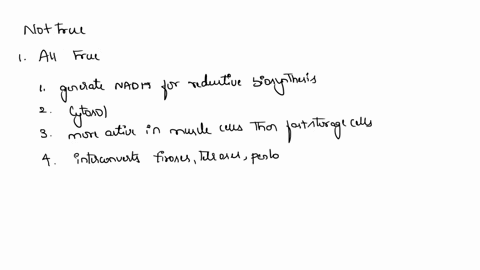 Not True
1. All True
1. generate NADPH for reductive biosynthesis
2. Cytosol
3. more active in muscle cells than fat storage cells
4. interconverts